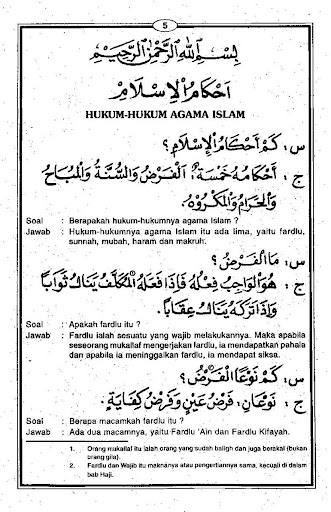 5
بِسْمِ اللهِ الرَّحْمٰنِ الرَّحِيْمِ
اَحْكَامُ الْاِسْلَامِ
HUKUM-HUKUM AGAMA ISLAM
س : كَمْ اَحْكَامُ الْاِسْلَامِ ؟
ج : اَحْكَامُهُ خَمْسَةٌ ، اَلْفَرْضُ وَالسُّنَّةُ وَالْمُبَاحُ
وَالْحَرَامُ وَالْمَكْرُوْهُ.
Soal : Berapakah hukum-hukumnya agama Islam ?
Jawab : Hukum-hukumnya agama Islam itu ada lima, yaitu fardlu,
sunnah, mubah, haram dan makruh.
س : مَا الْفَرْضُ ؟
ج : هُوَ الْوَاجِبُ فِعْلُهُ فَاِذَا فَعَلَهُ الْمُكَلَّفُ يَنَالُ ثَوَابًا
وَاِذَا تَرَكَهُ يَنَالُ عِقَابًا.
Soal : Apakah fardlu itu ?
Jawab : Fardlu ialah sesuatu yang wajib melakukannya. Maka apabila
seseorang mukallaf mengerjakan fardlu, ia mendapatkan pahala
dan apabila ia meninggalkan fardlu, ia mendapat siksa.
س : كَمْ نَوْعًا الْفَرْضُ ؟
ج : نَوْعَانِ ، فَرْضُ عَيْنٍ وَفَرْضُ كِفَايَةٍ.
Soal : Berapa macamkah fardlu itu ?
Jawab : Ada dua macamnya, yaitu Fardlu 'Ain dan Fardlu Kifayah.
1. Orang mukallaf itu ialah orang yang sudah baligh dan juga berakal (bukan
orang gila).
2. Fardlu dan Wajib itu maknanya atau pengertiannya sama, kecuali di dalam
bab Haji.